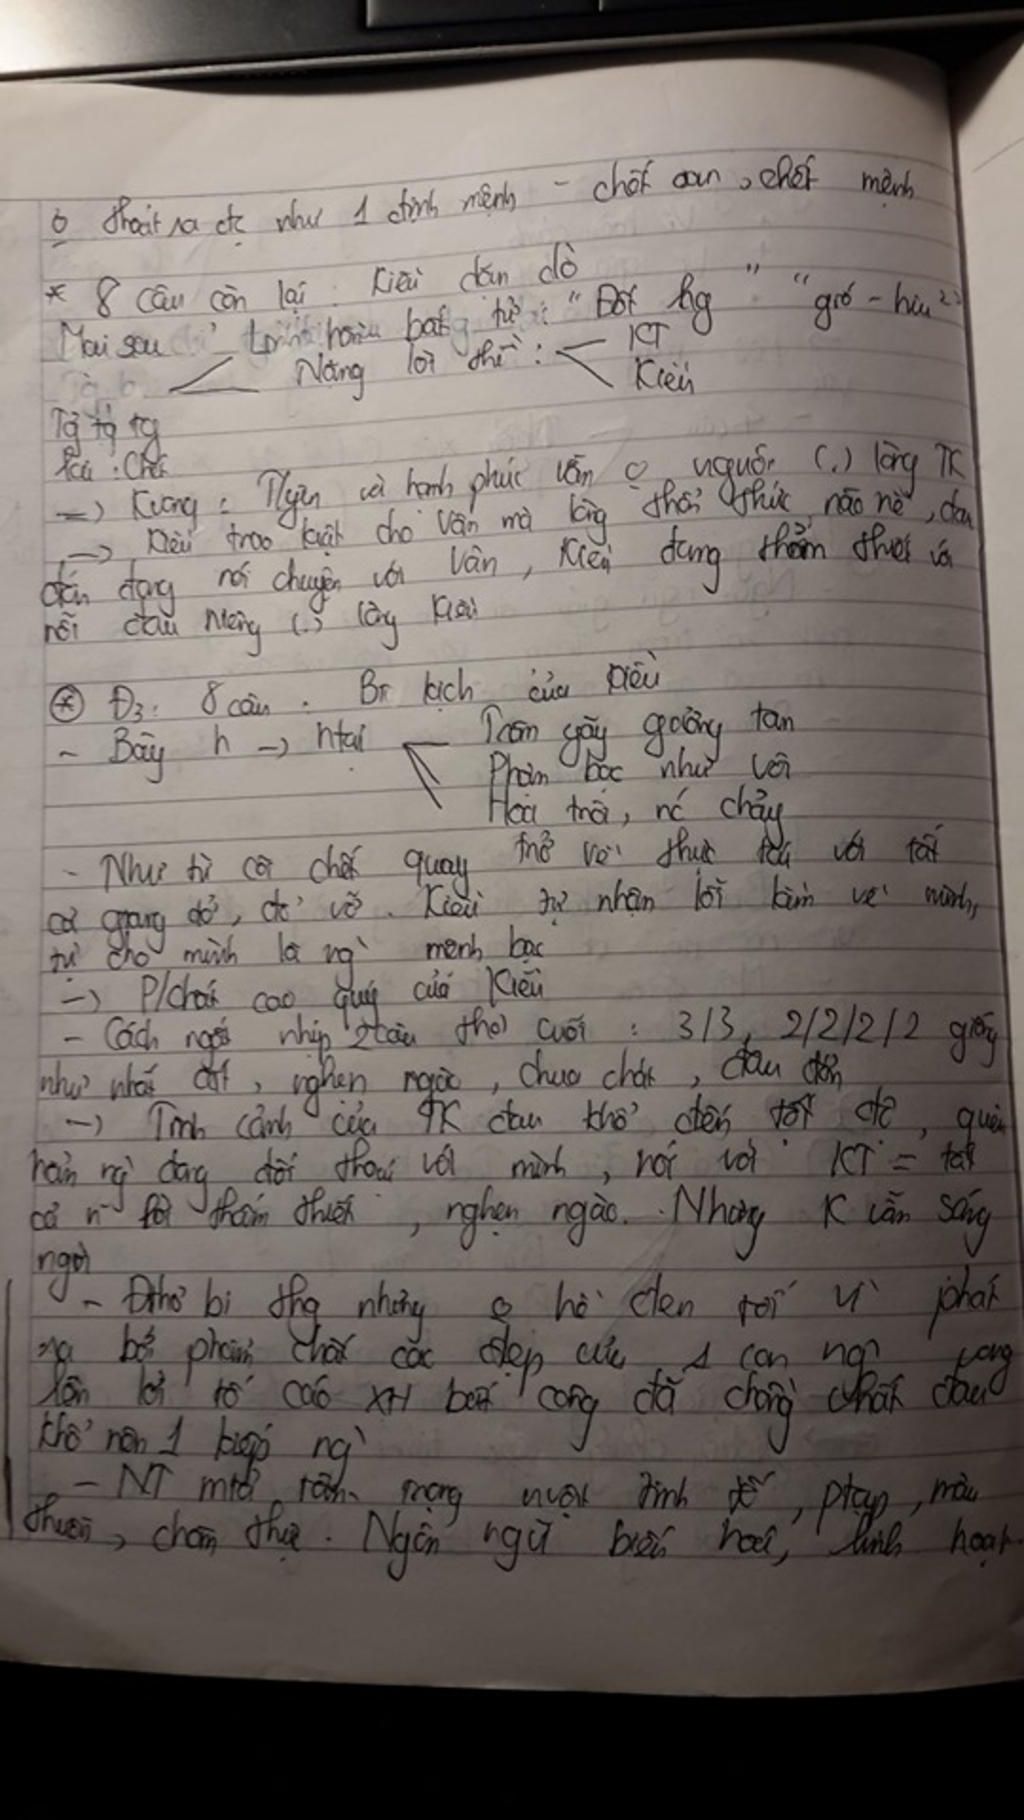 0 thoát ra đc như 1 định mệnh - chết oan, chết mệnh
* 8 câu còn lại : Kiều dặn dò
Mai sau : Linh hồn bất tử : "Đốt hg" "gió - hiu"
Nặng lời thề : KT
Kiều
→ Kương : và hạnh phúc vẫn 0 nguôi (.) lòng TK
→ Kiều trao kiệt cho Vân mà lòng thổn thức, não nề, đau
đớn đang nói chuyện với Vân, Kiều đang thấm thía với
nỗi đau riêng (.) lòng Kiều
* Đ3: 8 câu : Bi kịch của Kiều
- Bây h → htại Trâm gãy gương tan
Phận bạc như vôi
Hoa trôi, nc chảy
- Như từ cõi chết quay trở về thực tại với tất
cả dang dở, đổ vỡ. Kiều tự nhận lỗi lầm về mình,
tự cho mình là ng mệnh bạc
→ P/chất cao quý của Kiều
- Cách ngắt nhịp 2 câu thơ cuối : 3/3, 2/2/2/2 giống
như nhát cắt, nghẹn ngào, chua chát, đau đớn
→ Tình cảnh của TK đau khổ đến tột độ, quên
hẳn ng đang đối thoại với mình, nói với KT = tất
cả n lời thắm thiết, nghẹn ngào. Nhưng K vẫn sáng
ngời
- Đthơ bi thg nhưng 0 hề đen tối vì phát
ra bởi phẩm chất cao đẹp của 1 con ng
lên lời tố cáo XH bất công đã chồng chất đau
khổ nên 1 kiếp ng
- NT mtả tâm trạng tinh tế, ptạp, mâu
thuẫn, chân thực. Ngôn ngữ biến hoá, linh hoạt.